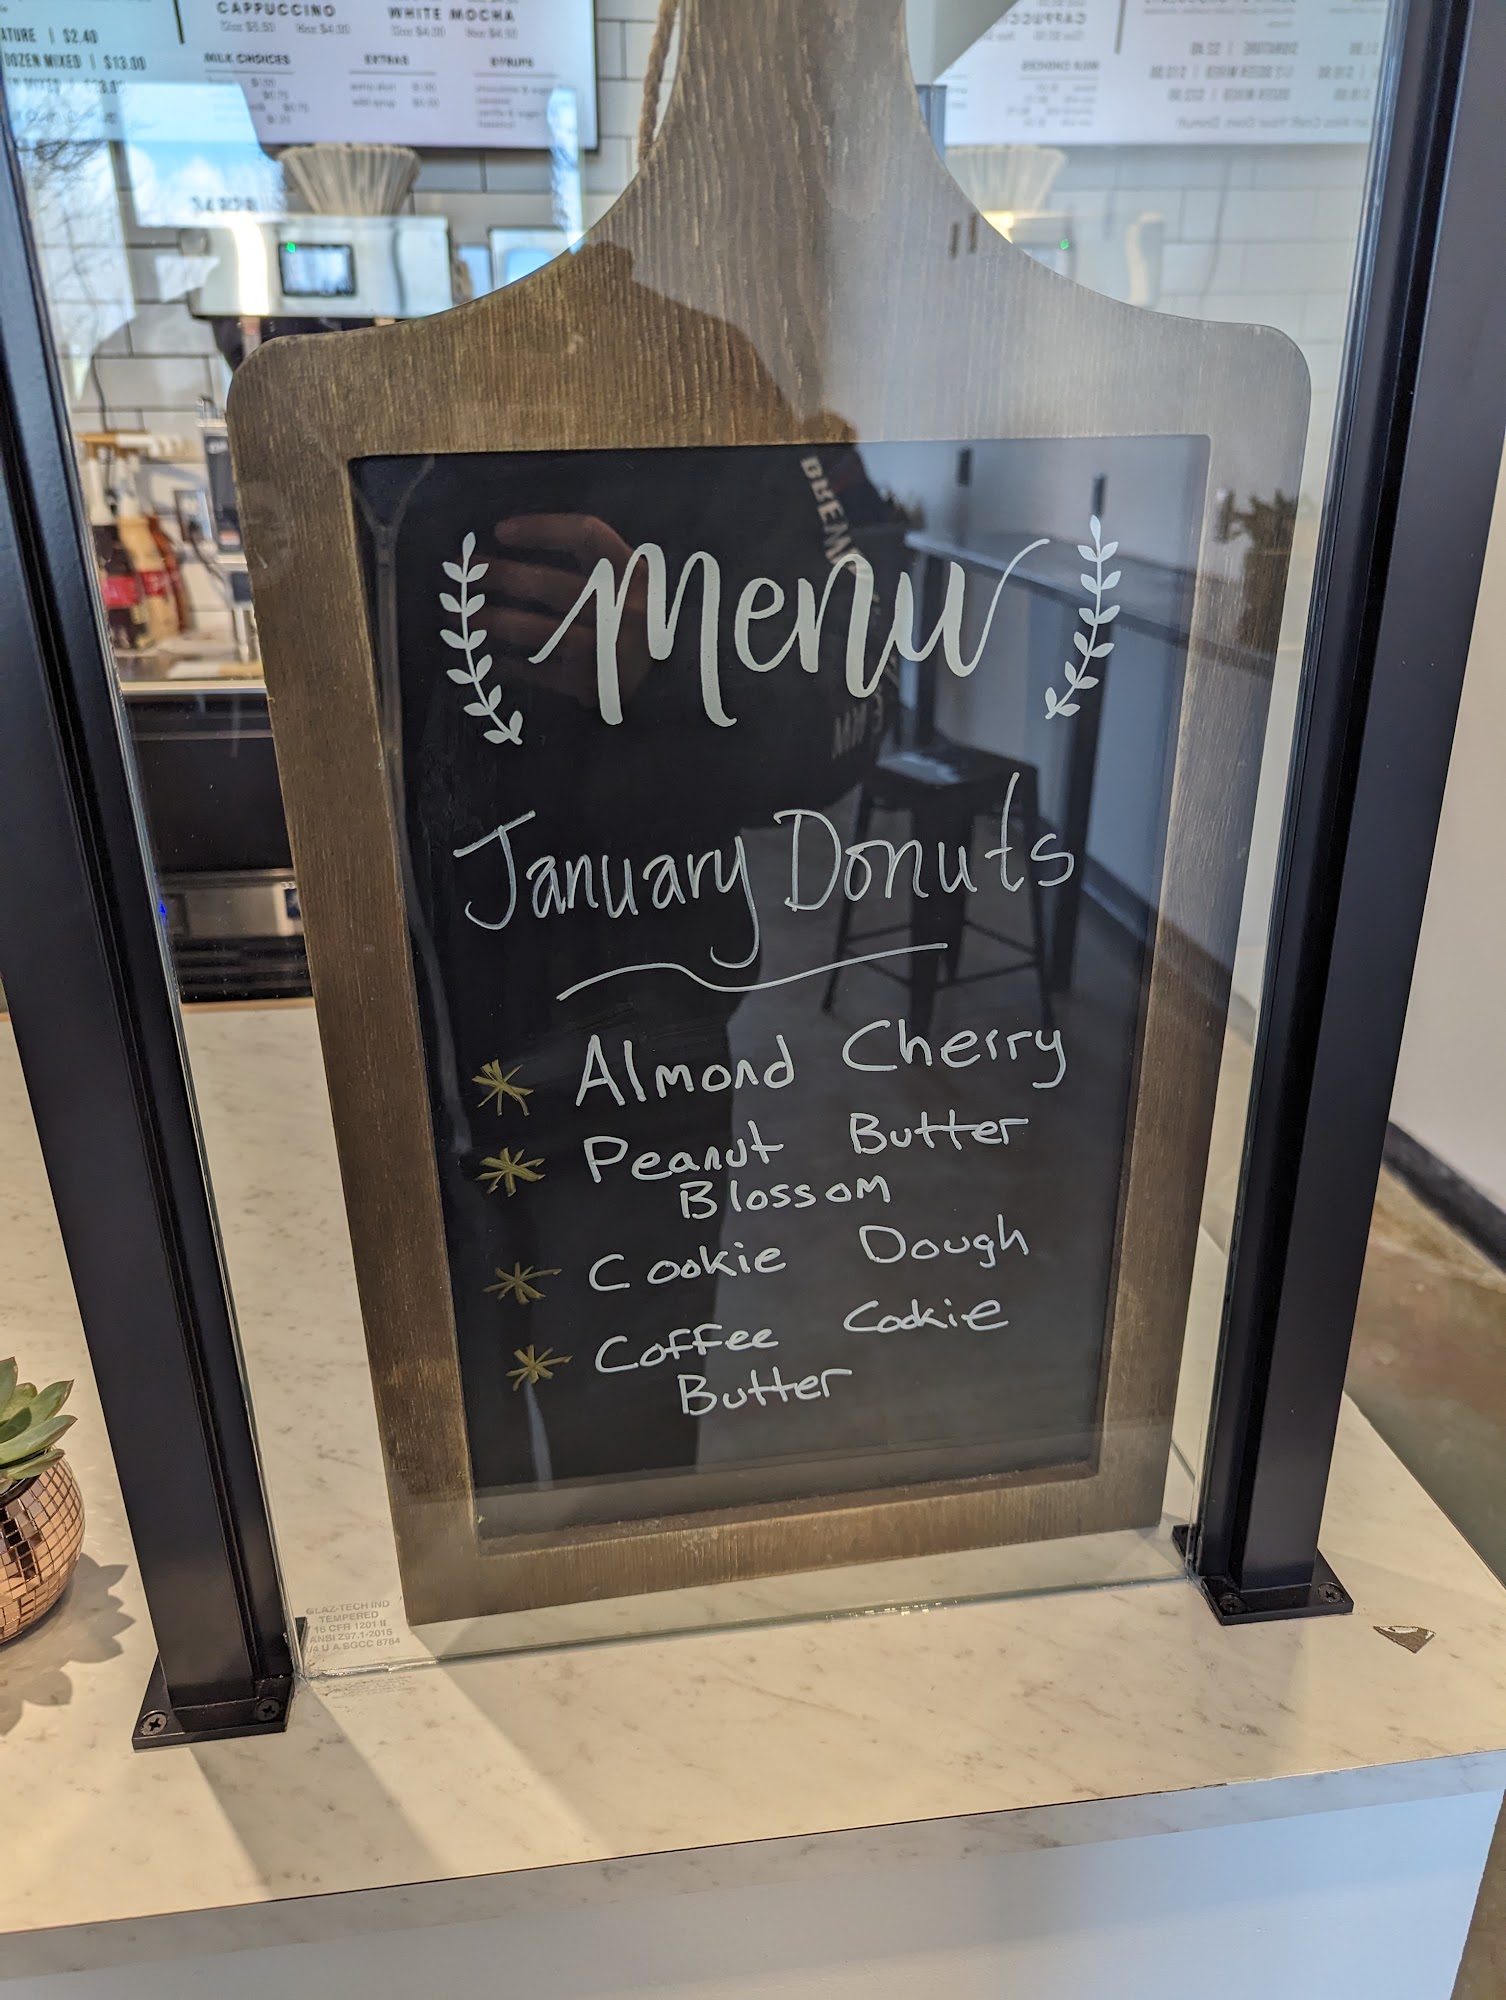 CAPPUCCINO
WHITE MOCHA
12oz $4.00 16oz $4.50
ATURE | $2.40
DOZEN MIXED | $13.00
MILK CHOICES
EXTRAS
SYRUPS
Menu
January Donuts
Almond Cherry
Peanut Butter
Blossom
Cookie Dough
Coffee Cookie
Butter
GLAZ-TECH IND
TEMPERED
16 CFR 1201 II
ANSI Z97.1-2015
U A SGCC 8784